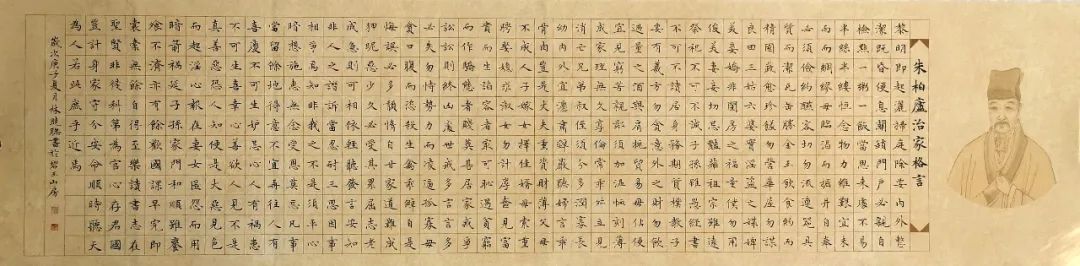 朱柏廬治家格言
黎明即起灑掃庭除要內外整
潔既昏便息關鎖門戶必親自
檢點一粥一飯當思來處不易
半絲半縷恒念物力維艱宜未
雨而綢繆毋臨渴而掘井自奉
必須儉約宴客切勿流連器具
質而潔瓦缶勝金玉飲食約而
精園蔬愈珍饈勿營華屋勿謀
良田三姑六婆實淫盜之媒婢
美妾嬌非閨房之福童僕勿用
俊美妻妾切忌艷妝祖宗雖遠
祭祀不可不誠子孫雖愚經書
不可不讀居身務期質樸教子
要有義方勿貪意外之財勿飲
過量之酒與肩挑貿易毋佔便
宜見窮苦親鄰須加溫恤刻薄
成家理無久享倫常乖舛立見
消亡兄弟叔侄須分多潤寡長
幼內外宜法肅辭嚴聽婦言乖
骨肉豈是丈夫重貲財薄父母
不成人子嫁女擇佳婿毋索重
聘娶媳求淑女勿計厚奩見富
貴而生諂容者最可恥遇貧窮
而作驕態者賤莫甚居家戒爭
訟訟則終凶處世戒多言言多
必失勿恃勢力而凌逼孤寡毋
貪口腹而恣殺牲禽乖僻自是
悔誤必多頹惰自甘家道難成
狎昵惡少久必受其累屈志老
成急則可相依輕聽發言安知
非人之譖訴當忍耐三思因事
相爭焉知非我之不是須平心
暗想施惠無念受恩莫忘凡事
當留餘地得意不宜再往人有
喜慶不可生妒忌心人有禍患
不可生喜幸心善欲人見不是
真善惡恐人知便是大惡見色
而起淫心報在妻女匿怨而用
暗箭禍延子孫家門和順雖饔
飧不濟亦有餘歡國課早完即
囊橐無餘自得至樂讀書志在
聖賢非徒科第為官心存君國
豈計身家守分安命順時聽天
為人若此庶乎近焉
歲次庚子夏月林書於山房